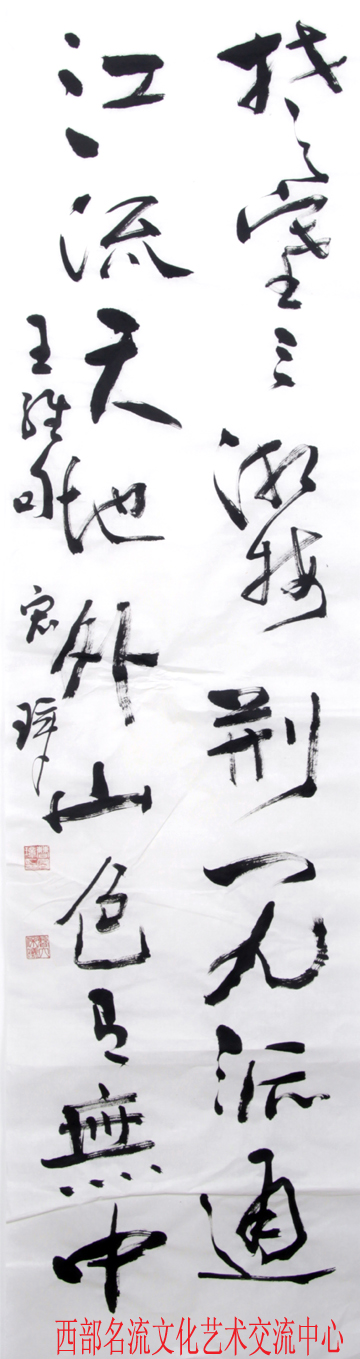 楚塞三湘接荆门九派通
江流天地外山色有無中
王維
西部名流文化艺术交流中心